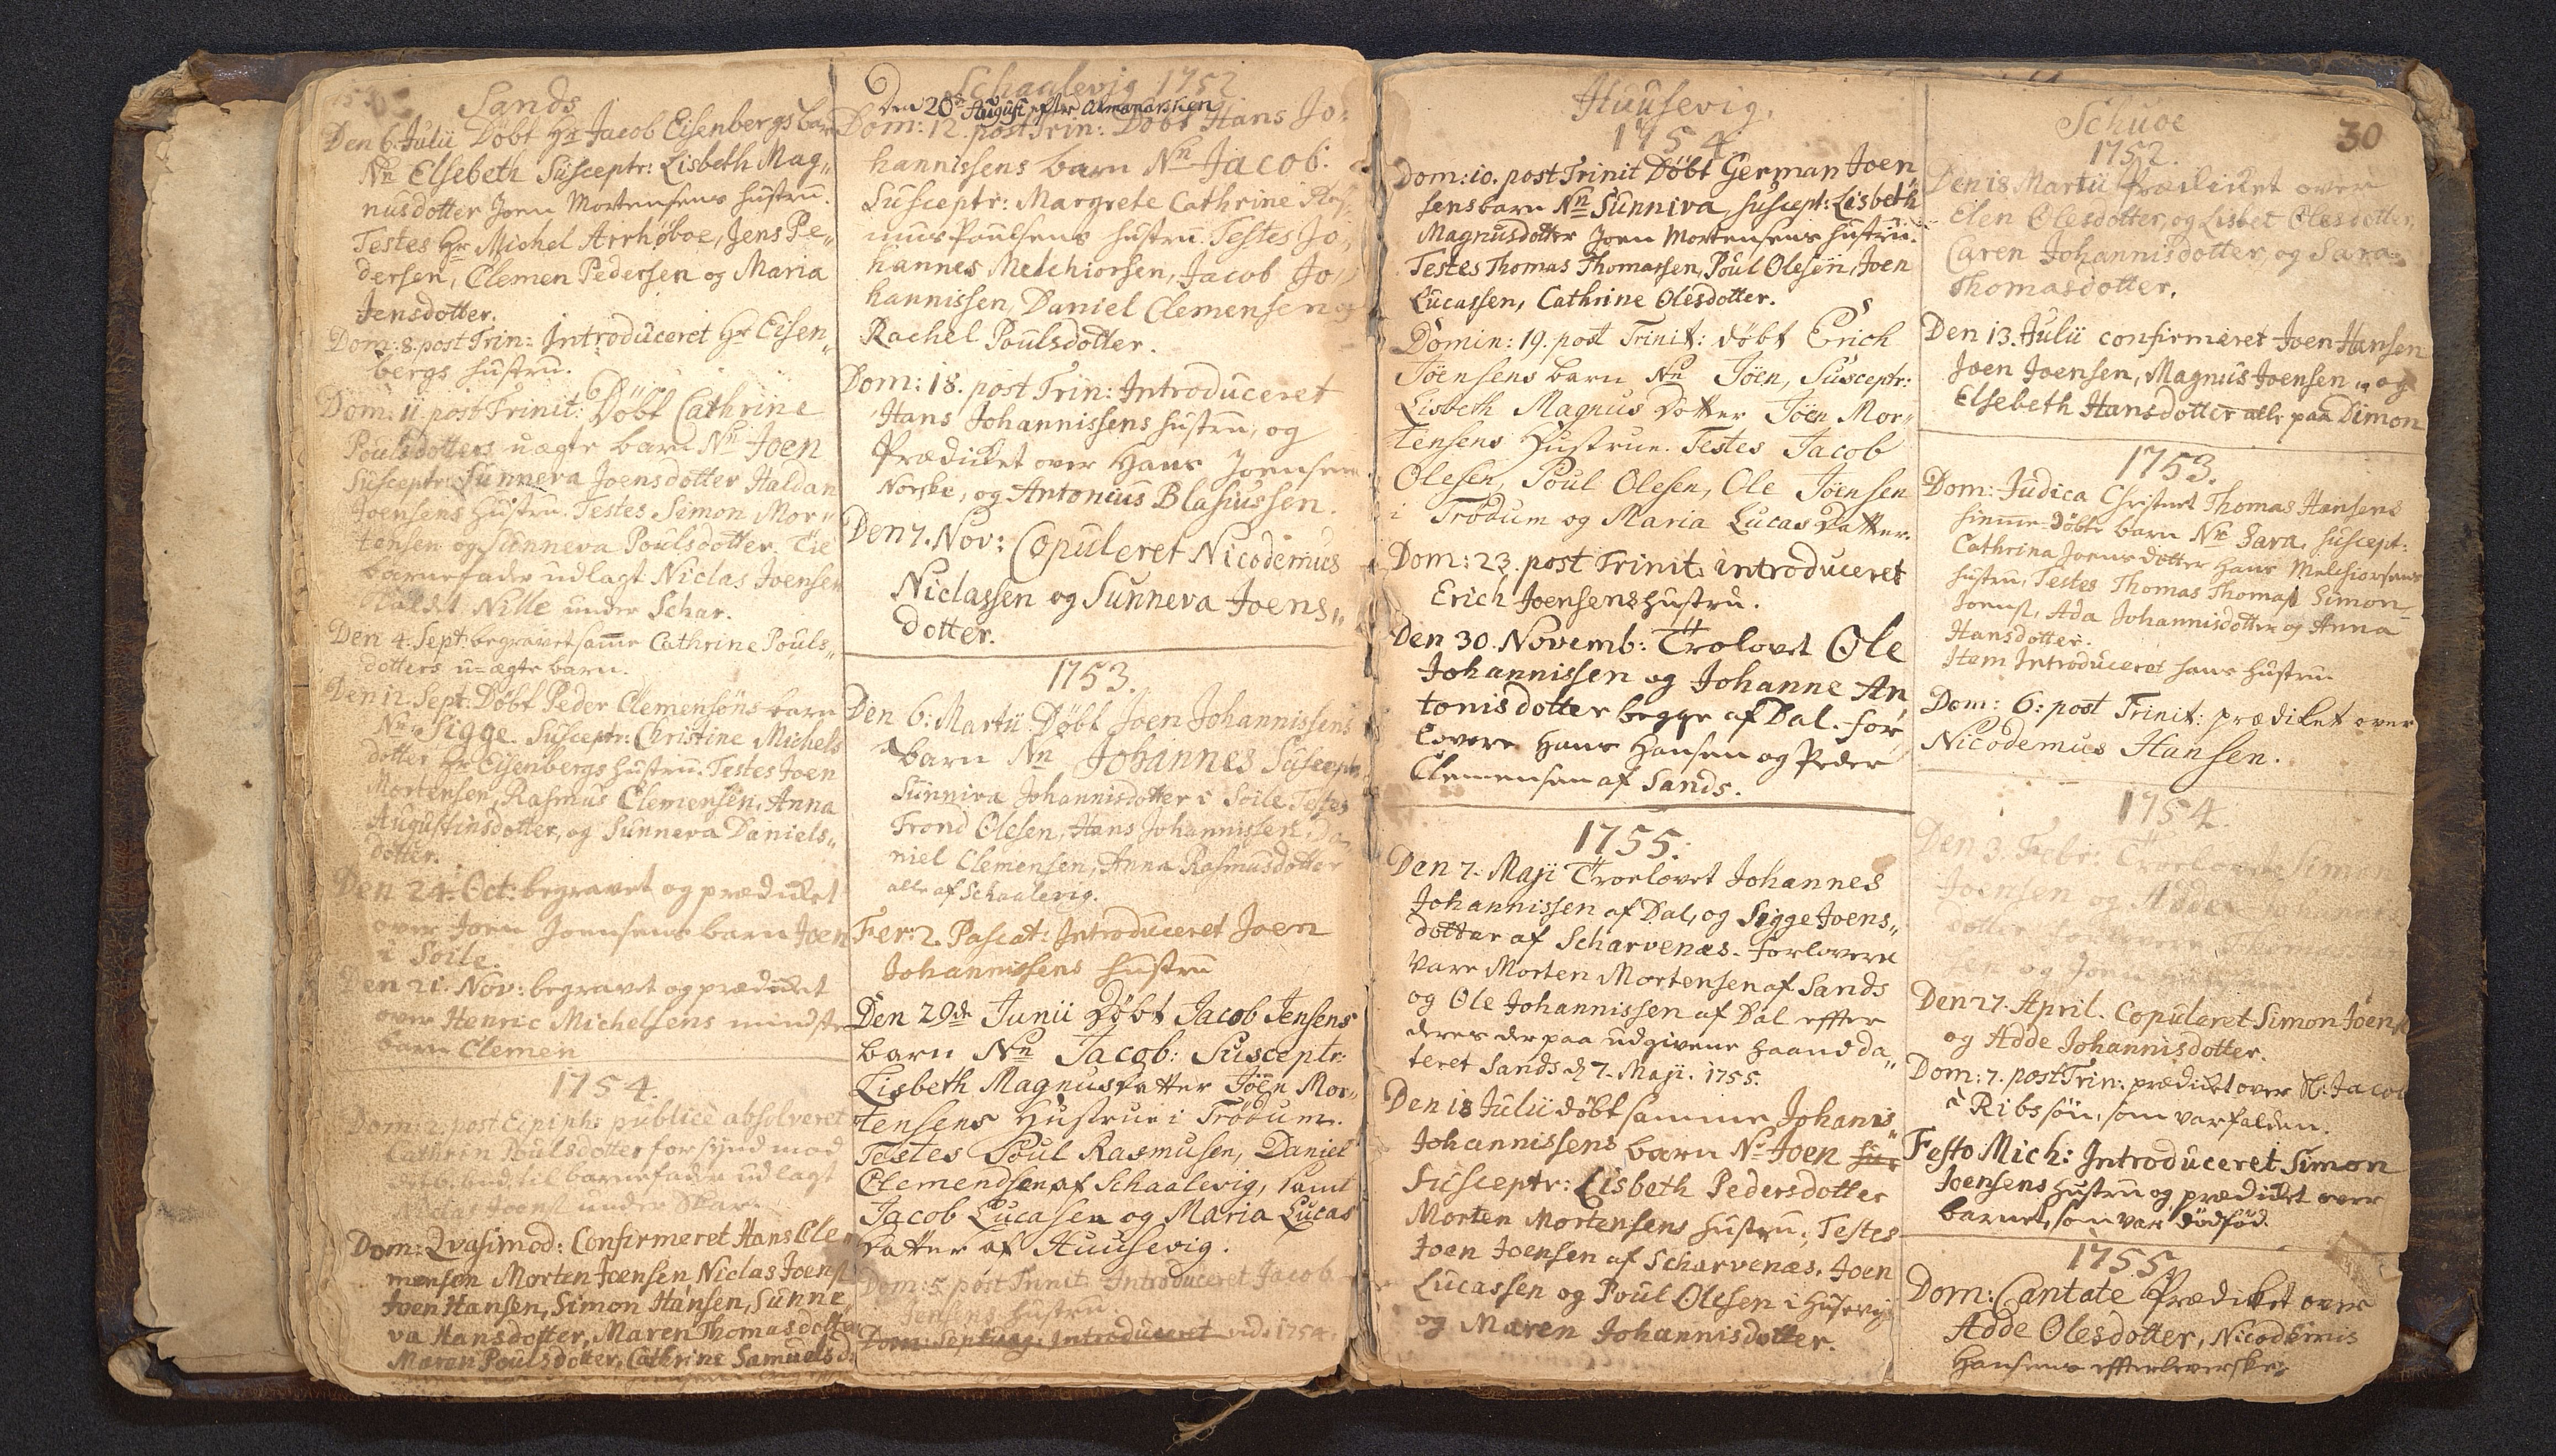 Sands
Den 6. Julii Döbt Hr Jacob Eisenbergs barn
Nn Elsebeth Susceptr: Lisbeth Mag„
nusdotter Joen Mortensens hustru.
Testes Hr Michel Arrhøboe, Jens Pe„
dersen, Clemen Pedersen og Maria
Jensdotter.
Dom: 8. post Trin: Introduceret Hr Eisen„
bergs hustru.
Dom: 11. post Trinit: Döbt Cathrine
Poulsdotters uægte barn Nn Joen
Susceptr: Sunneva Joensdotter Haldan
Joensens hustru. Testes Simon Mor„
tensen og Sunneva Poulsdotter. Til
barnefader udlagt Niclas Joensen
kaldet Nille under Schar.
Den 4. Sept: begravet samme Cathrine Pouls„
dotters u=ægte barn.
Den 12. Sept: Döbt Peder Clemensöns barn
Nn Sigge. Susceptr: Christine Michels
dotter Hr Eisenbergs hustru. Testes Joen
Mortensen, Rasmus Clemensen, Anna
Augustinsdotter, og Sunneva Daniels„
dotter.
Den 24. Oct: begravet og prædiket
over Joen Joensens barn Joen
i Soile.
Den 21. Nov: begravet og prædiket
over Henric Michelsens mindste
barn Clemen
1754.
Dom: 2. post Epiph: publicè absolveret
Cathrin Poulsdotter for synd mod
6te bud, til barnefader udlagt
Niclas Joens: under Skar.
Dom: Qvasimod: Confirmeret Hans Cle„
mensen Morten Joensen Niclas Joens:
Joen Hansen, Simon Hansen, Sunne„
va Hansdotter, Maren Thomasdotter
Maren Poulsdotter, Cathrine Samuelsd:
Schaalevig 1752
Den 20de Augusti efter Almanachen
Dom: 12. post Trin: Döbt Hans Jo„
hannissens barn Nn Jacob.
Susceptr: Margrete Cathrine Ras„
mus Poulsens hustru. Testes Jo„
hannes Melchiorsen, Jacob Jo„
hannissen, Daniel Clemensen og
Rachel Poulsdotter.
Dom: 18. post Trin: Introduceret
Hans Johannissens hustru, og
Prædiket over Hans Joensen
Norske, og Antonius Blasiussen.
Den 7. Nov: Copuleret Nicodemus
Niclassen og Sunneva Joens„
dotter.
1753.
Den 6: Martii Döbt Joen Johannissens
barn Nn Johannes Susceptr:
Sunniva Johannisdotter i Soile Testes
Trond Olesen, Hans Johannissen, Da„
niel Clemensen, Anna Rasmusdotter
alle af Schaalevig.
Fer: 2. Pascat: Introduceret Joen
Johannissens hustru
Den 29de Junii Döbt Jacob Jensens
barn Nn Jacob: Susceptr:
Lisbeth Magnusdatter Jöen Mor„
tensens Hustrue i Trödum.
Testes Poul Rasmusen, Daniel
Clemendsen af Schaalevig, samt
Jacob Lucasen og Maria Lucas
datter af Huusevig.
Dom: 5. post Trinit: Introduceret Jacob
Jensens hustru.
Dom: Septuag: Introduceret vid. 1754.
Huusevig.
1754.
Dom: 10. post Trinit Döbt German Joen„
sens barn Nn Sunniva, suscept: Lisbeth
Magnusdotter Joen Mortensens hustru.
Testes Thomas Thomassen, Poul Olesen, Joen
Lucassen, Cathrine Olesdotter.
Domin: 19. post Trinit: döbt Erich
Jöensens barn Nn Jöen, Susceptr:
Lisbeth Magnus Dotter Jöen Mor„
tensens Hustrue. Testes Jacob
Olesen, Poul Olesen, Ole Jöensen
i Trödum og Maria Lucas Datter.
Dom: 23. post Trinit: introduceret
Erich Joensens hustru.
Den 30. Novemb: Trolovet Ole
Johannissen og Johanne An„
tonisdotter begge af Dal. for„
lovere Hans Hansen og Peder
Clemensen af Sands.
1755.
Den 7. Maji Troelovet Johannes
Johannissen af Dal, og Sigge Joens„
dotter af Scharvenæs. Forlovere
vare Morten Mortensen af Sands
og Ole Johannissen af Dal effter
deres derpaa udgivene haand da„
teret Sands d 7. Maji. 1755.
Den 18 Julii döbt samme Johanis„
Johannissens barn Nn Joen sus
susceptr: Lisbeth Pedersdotter
Morten Mortensens hustru, Testes
Joen Joensen af Scharvenæs. Joen
Lucassen og Poul Olesen i Husevig
og Maren Johannisdotter.
30
Schuoe
1752.
Den 18 Martii Prædiket over
Elen Olesdotter, og Lisbet Olesdotter,
Caren Johannisdotter, og Sara
Thomasdotter.
Den 13. Julii confirmeret Joen Hansen
Joen Joensen, Magnus Joensen, og
Elsebeth Hansdotter alle paa Dimon
1753.
Dom: Judica Christnet Thomas Hansens
hiemme-döbte barn Nn Sara. suscept:
Cathrina Joensdotter Hans Melchiorsens
hustru, Testes Thomas Thomas: Simon
Joens:, Ada Johannisdotter og Anna
Hansdotter.
Item Introduceret hans hustru
Dom: 6: post Trinit: prædiket over
Nicodemus Hansen.
1754.
Den 3. Febr: Troelovet Simon
Joensen og Adde
dotter, forlovere
og Joen
Den 27. April. Copuleret Simon Joens:
og Adde Johannisdotter.
Dom: 7. post Trin: prædiket over Sl: Jacob
Ribs sön, som var falden.
Festo Mich: Introduceret Simon
Joensens hustru og prædiket over
barnet, som var dödföd.
1755
Dom: Cantate Prædiket over
Adde Olesdotter, Nicodemis
Hansens effterleverske.